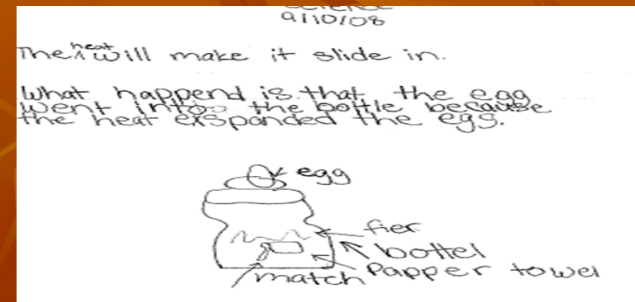 9/10/08
The heat will make it slide in.
What happend is that the egg
went into the bottle because
the heat exspanded the egg.
egg
fier
bottel
match
Papper towel